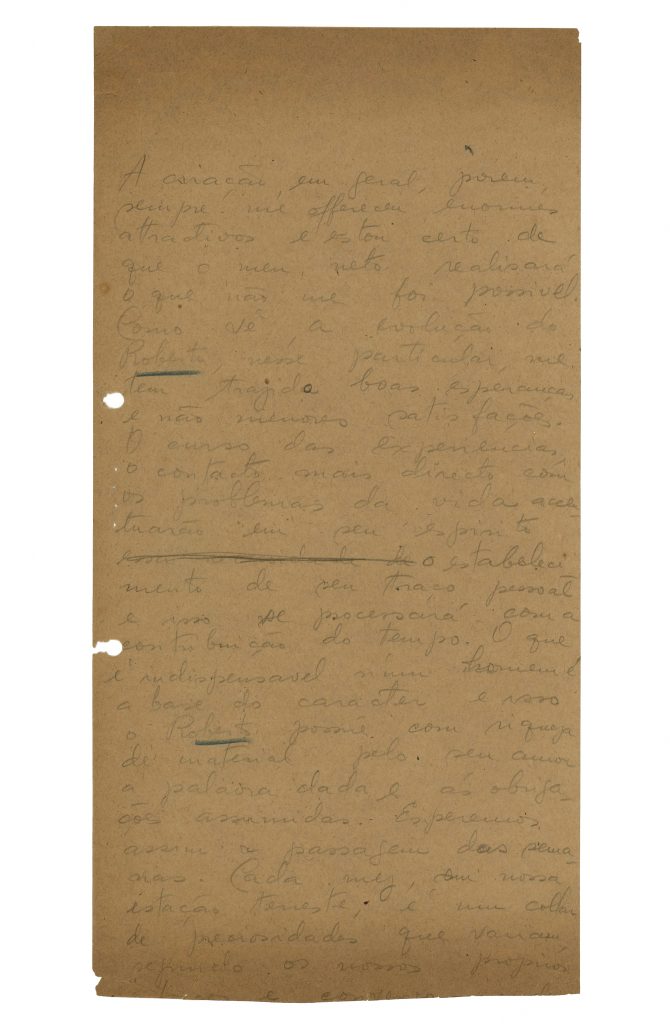 A aviação, em geral, porem,
sempre me offereceu enormes
attractivos e estou certo de
que o meu neto realisará
o que não me foi possivel.
Como vê a evolução do
Roberto, nesse particular, me
tem trazido boas esperanças
e não menores satisfações.
O curso das experiencias,
o contacto mais directo com
os problemas da vida accen
tuarão em seu espirito
o estabeleci
mento de seu traço pessoal
e isso se processará com a
contribuição do tempo. O que
é indispensavel n'um homem é
a base do caracter e isso
o Roberto possúe com riqueza
de material pelo seu amor
a palavra dada e ás obriga
ções assumidas. Esperemos
assim a passagem das sema-
nas. Cada mez, em nossa
estação terrestre, é um collar
de preciosidades que variam
segundo os nossos proprios